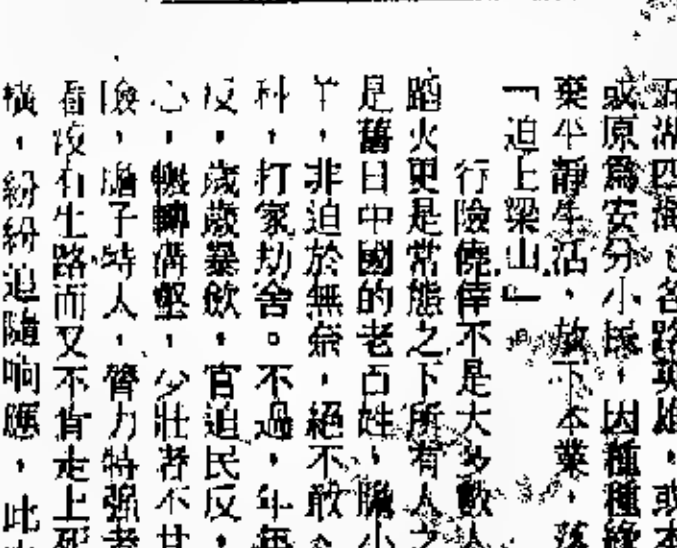 五湖四海
各路英雄，或本
或原爲安分小民，因種種緣
棄平靜生活，放下本業，落
「迫上梁山」
行險僥倖不是大多數人
蹈火更是常態之下所有人之
是舊日中國的老百姓，膽小
羊，非迫於無奈，絕不敢
科，打家劫舍。不過，年
反，歲歲暴斂，官迫民反，
心，輾轉溝壑，少壯者不甘
險，膽子特大，膂力特強者
看沒有生路而又不肯走上死
橫，紛紛追隨响應，此